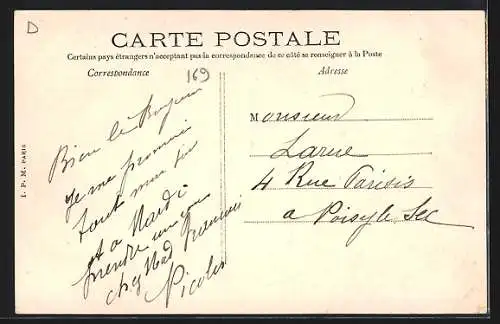 D
CARTE POSTALE
Certains pays étrangers n'acceptant pas la correspondance de ce côté se renseigner à la Poste
Correspondance
169
Adresse
I. P. M. PARIS
Bien le Bonjour
Je me promène
tout mon
et a Mardi
prendre
chez Mad
Nicolas
Monsieur
Larue
4 Rue Parisis
a Poisy le Sec